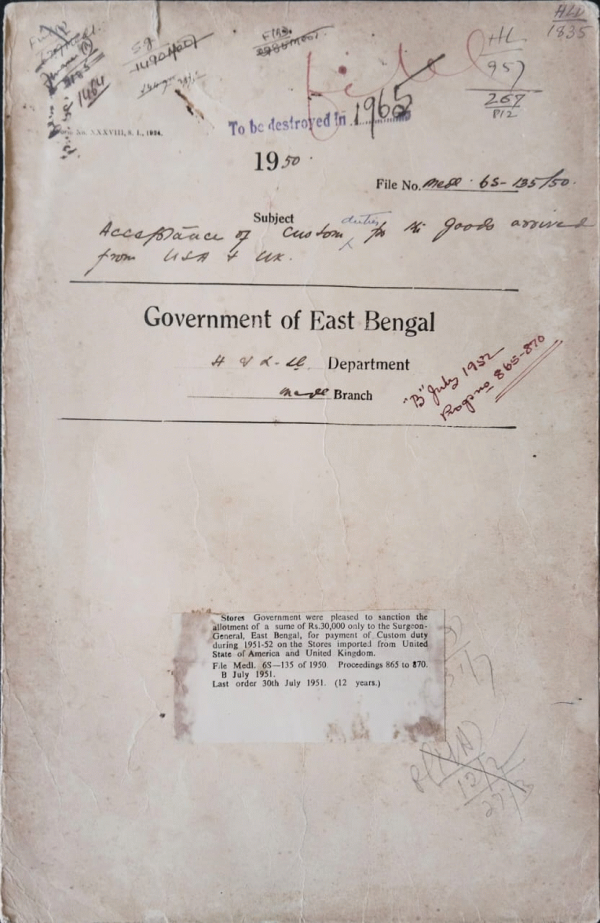 HLD
1835
HL
957
267
P12
1464
To be destroyed in 1965
No. XXXVIII, S. I., 1934.
1950.
File No. Medl. 6S-135/50.
Subject
Acceptance of Custom duties for the goods arrived
from USA & UK.
Government of East Bengal
Department
Medl Branch
"B" July 1952
Progs no 865-870
Stores Government were pleased to sanction the
allotment of a sume of Rs.30,000 only to the Surgeon-
General, East Bengal, for payment of Custom duty
during 1951-52 on the Stores imported from United
State of America and United Kingdom.
File Medl. 6S—135 of 1950. Proceedings 865 to 870.
B July 1951.
Last order 30th July 1951. (12 years.)